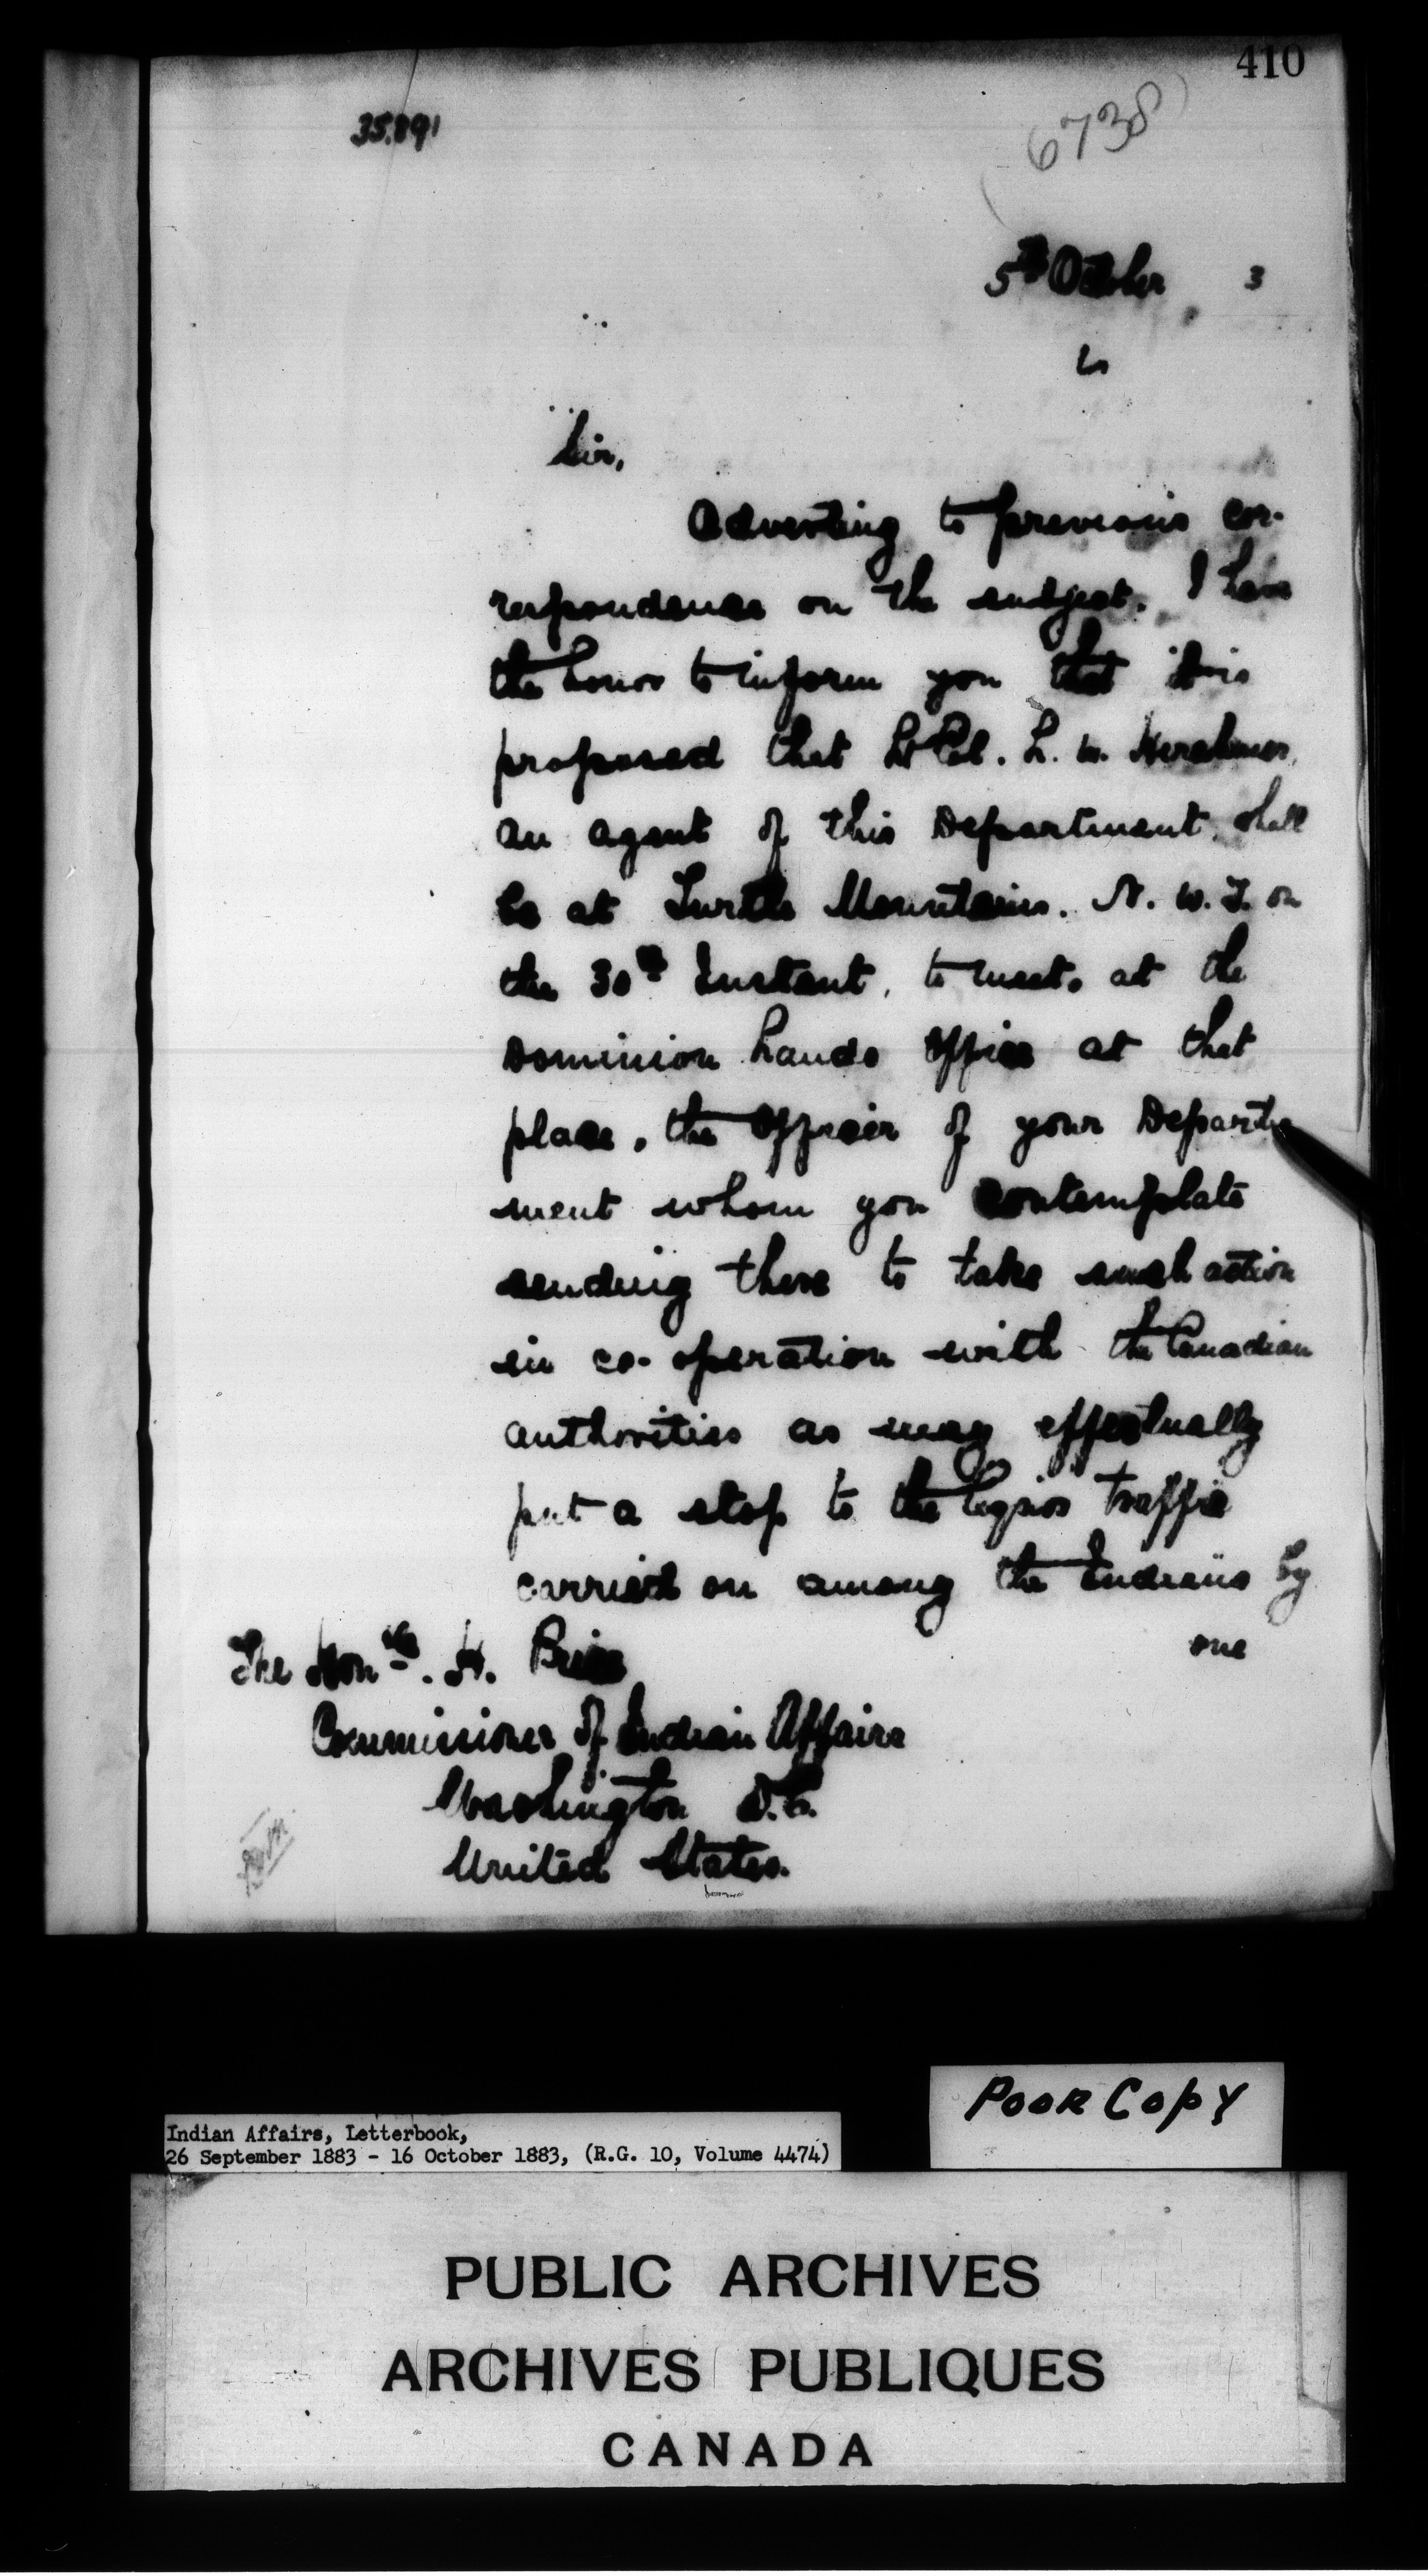 410
35891
6738
5th October 3
Sir,
Adverting to previous cor-
respondence on the subject. I have
the honor to inform you that it is
proposed that Lt Col. L. W. Herchmer,
an agent of this Department, shall
be at Turtle Mountains. N. W. T. on
the 30th Instant, to meet, at the
Dominion Lands Office at that
place, the officer of your Depart-
ment whom you contemplate
sending there to take such action
in co-operation with the Canadian
authorities as may effectually
put a stop to the liquor traffic
carried on among the Indians by
one
The Honble. H. Price
Commissioner of Indian Affairs
Washington D.C.
United States.
Poor Copy
Indian Affairs, Letterbook,
26 September 1883 - 16 October 1883, (R.G. 10, Volume 4474)
PUBLIC ARCHIVES
ARCHIVES PUBLIQUES
CANADA